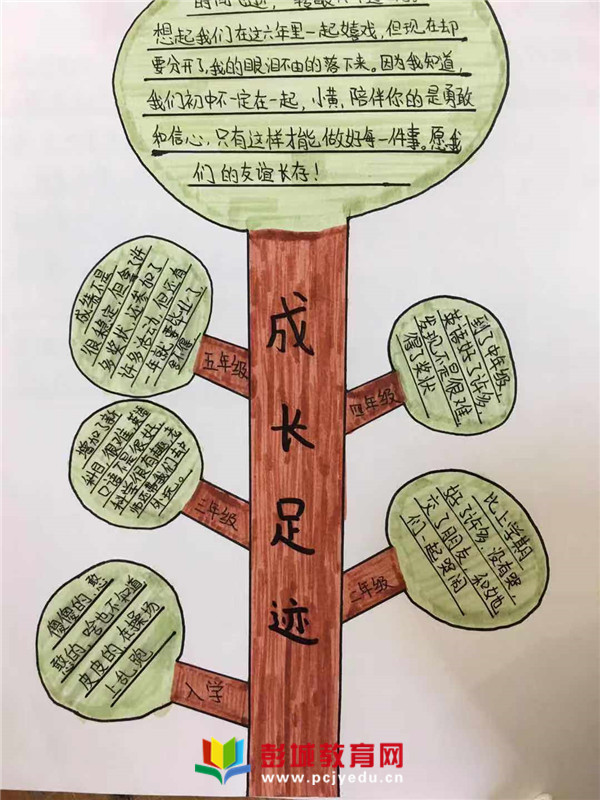 想起我们在这六年里一起嬉戏，但现在却
要分开了，我的眼泪不由的落下来。因为我知道，
我们初中不一定在一起，小黄，陪伴你的是勇敢
和信心，只有这样才能做好每一件事。愿我
们的友谊长存！
成长足迹
五年级
成绩不是
很稳定，但拿了许
多奖状，还参加了
好多活动，但还有
一年就要毕业了
四年级
到了中年级，
英语好了许多，
发现不是很难，
得了奖状
三年级
增加了新
科目，很难，英语
口语不是很好，
科学很有趣，老
师还带我们去
外玩。
二年级
比上学期
好了许多，没有哭，
交了朋友，和她
们一起哭闹
入学
傻傻的，憨
憨的，啥也不知道
皮皮的在操场
上乱跑
彭城教育网
www.pcjyedu.cn